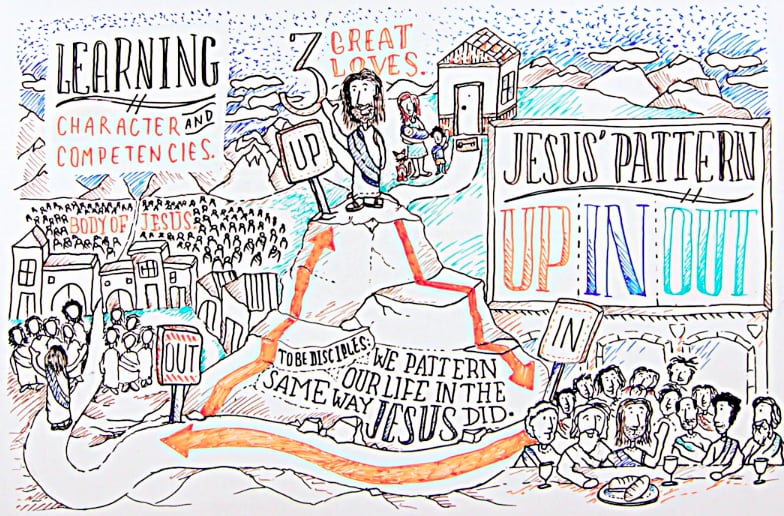 LEARNING
CHARACTER AND
COMPETENCIES.
3 GREAT
LOVES.
UP
JESUS' PATTERN
UP IN OUT
BODY OF JESUS.
OUT
IN
TO BE DISCIPLES:
WE PATTERN
OUR LIFE IN THE
SAME WAY
JESUS DID.